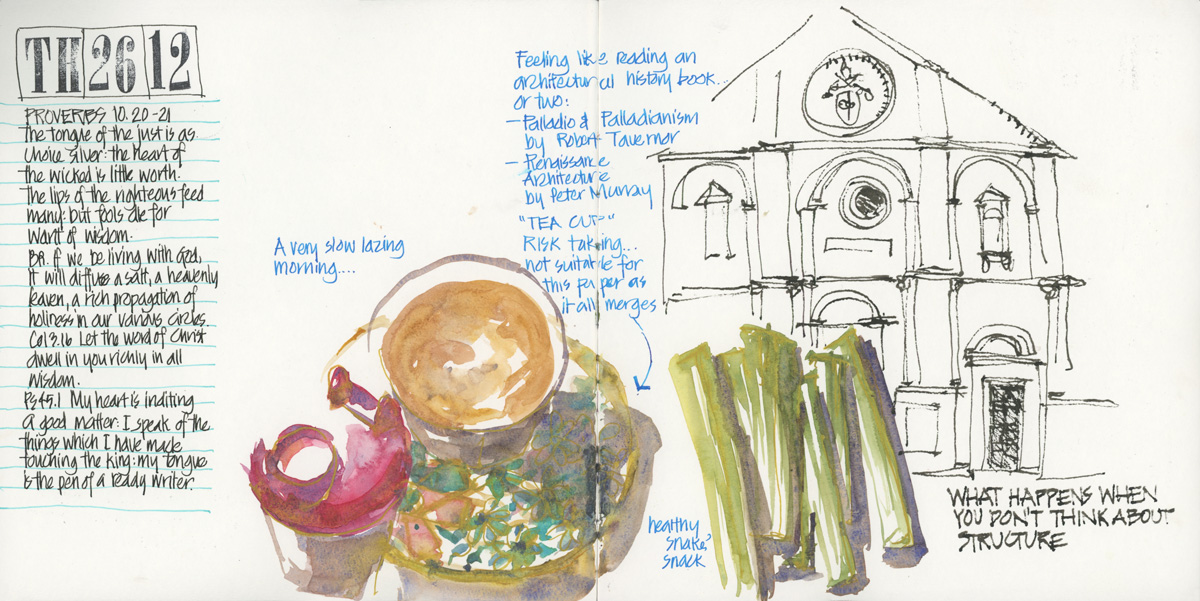 TH 26 12
PROVERBS 10.20-21
The tongue of the just is as
choice silver: the heart of
the wicked is little worth.
The lips of the righteous feed
many: but fools die for
want of wisdom.
BR. If we be living with God,
it will diffuse a salt, a heavenly
leaven, a rich propagation of
holiness in our various circles.
Col 3.16 Let the word of Christ
dwell in you richly in all
wisdom.
Ps 45.1 My heart is inditing
a good matter: I speak of the
things which I have made
touching the king: my tongue
is the pen of a ready writer.
A very slow lazing
morning....
Feeling like reading an
architectural history book..
or two:
- Palladio & Palladianism
by Robert Tavernor
- Renaissance
Architecture
by Peter Murray
"TEA CUP"
Risk taking...
not suitable for
this paper as
it all merges
healthy
snake?
snack
WHAT HAPPENS WHEN
YOU DON'T THINK ABOUT
STRUCTURE